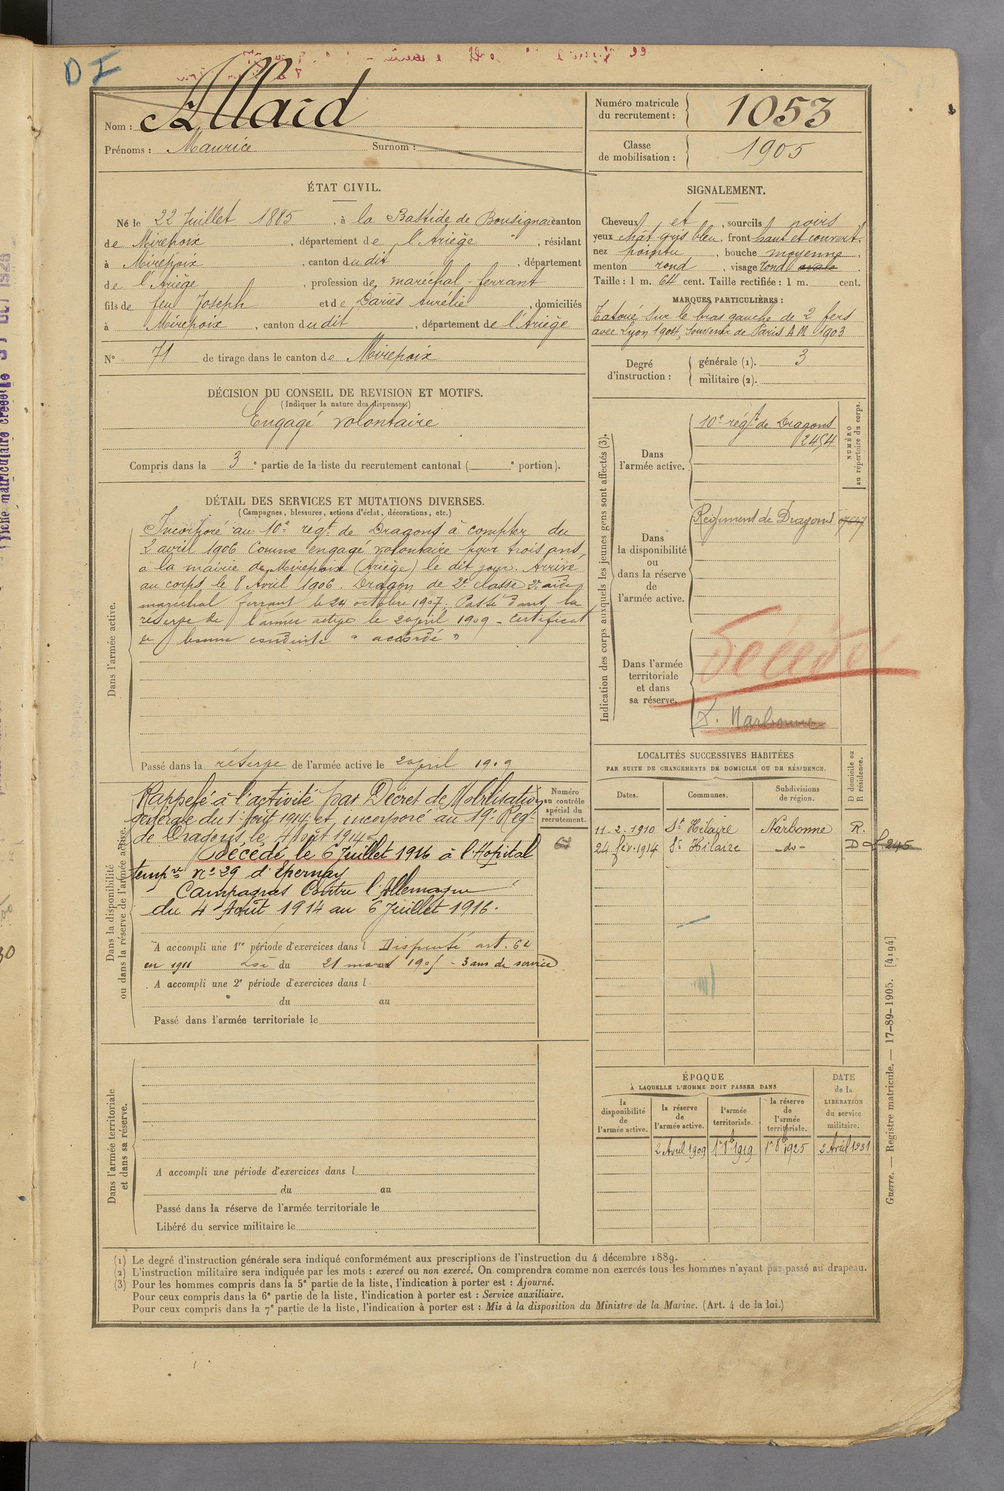 D I
Nom : Allard
Prénoms : Maurice Surnom :
Numéro matricule du recrutement : 1053
Classe de mobilisation : 1905
ÉTAT CIVIL.
Né le 22 Juillet 1885, à la Bastide de Bousignac canton
de Mirepoix, département de l'Ariège, résidant
à Mirepoix, canton du dit, département
de l'Ariège, profession de maréchal-ferrant
fils de feu Joseph et de Dariès Aurélie, domiciliés
à Mirepoix, canton du dit, département de l'Ariège
N° 71 de tirage dans le canton de Mirepoix
SIGNALEMENT.
Cheveux et, sourcils noirs
yeux chat gris bleu, front haut et couvert.
nez pointu, bouche moyenne
menton rond, visage rond ovale
Taille : 1 m. 64 cent. Taille rectifiée : 1 m. cent.
MARQUES PARTICULIÈRES :
Tatoué sur le bras gauche de 2 fers
avec Lyon 1904, Souvenir de Paris A.M. 1903
Degré d'instruction : générale (1). 3
militaire (2).
DÉCISION DU CONSEIL DE REVISION ET MOTIFS.
(Indiquer la nature des dispenses.)
Engagé volontaire
Compris dans la 3e partie de la liste du recrutement cantonal ( e portion).
DÉTAIL DES SERVICES ET MUTATIONS DIVERSES.
(Campagnes, blessures, actions d'éclat, décorations, etc.)
Dans l'armée active.
Incorporé au 10e régt de Dragons à compter du
2 avril 1906 Comme engagé volontaire pour trois ans,
à la mairie de Mirepoix (Ariège) le dit jour. Arrivé
au corps le 8 Avril 1906 Dragon de 2e classe
maréchal ferrant le 24 octobre 1907. Passé dans la
réserve de l'armée active le 2 april 1909 - Certificat
de bonne conduite " accordé "
Passé dans la réserve de l'armée active le 2 april 1909
Indication des corps auxquels les jeunes gens sont affectés (3).
NUMÉRO au répertoire du corps.
Dans l'armée active.
10e régt de Dragons
2454
Dans la disponibilité ou dans la réserve de l'armée active.
Régiment de Dragons
Dans l'armée territoriale et dans sa réserve.
Décédé
d. Narbonne
Dans la disponibilité ou dans la réserve de l'armée active.
Numéro au contrôle spécial du recrutement.
Rappelé à l'activité par Décret de Mobilisation
générale du 1er Août 1914 et, incorporé au 19e Rég.
de Dragons le 4 Août 1914
Décédé le 6 Juillet 1916 à l'Hopital
tempre n° 29 d'Epernay
Campagnes Contre l'Allemagne
du 4 Août 1914 au 6 Juillet 1916.
A accompli une 1re période d'exercices dans l Dispensé art. 62
en 1911 Loi du 21 mars 1905 - 3 ans de service
A accompli une 2e période d'exercices dans l
du au
Passé dans l'armée territoriale le
LOCALITÉS SUCCESSIVES HABITÉES
PAR SUITE DE CHANGEMENTS DE DOMICILE OU DE RÉSIDENCE.
Dates. Communes. Subdivisions de région. D domicile ou R résidence.
11-2-1910 St Hilaire Narbonne R.
24 fév. 1914 St Hilaire -do- D
ÉPOQUE
À LAQUELLE L'HOMME DOIT PASSER DANS
DATE de la LIBÉRATION du service militaire.
la disponibilité de l'armée active. la réserve de l'armée active. l'armée territoriale. la réserve de l'armée territoriale.
2 Avril 1909 1er 8bre 1919 1er 8bre 1925 2 Avril 1931
Dans l'armée territoriale et dans sa réserve.
A accompli une période d'exercices dans l
du au
Passé dans la réserve de l'armée territoriale le
Libéré du service militaire le
(1) Le degré d'instruction générale sera indiqué conformément aux prescriptions de l'instruction du 4 décembre 1889.
(2) L'instruction militaire sera indiquée par les mots : exercé ou non exercé. On comprendra comme non exercés tous les hommes n'ayant pas passé au drapeau.
(3) Pour les hommes compris dans la 5e partie de la liste, l'indication à porter est : Ajourné.
Pour ceux compris dans la 6e partie de la liste, l'indication à porter est : Service auxiliaire.
Pour ceux compris dans la 7e partie de la liste, l'indication à porter est : Mis à la disposition du Ministre de la Marine. (Art. 4 de la loi.)
Guerre. — Registre matricule. — 17-89-1905. [4194]